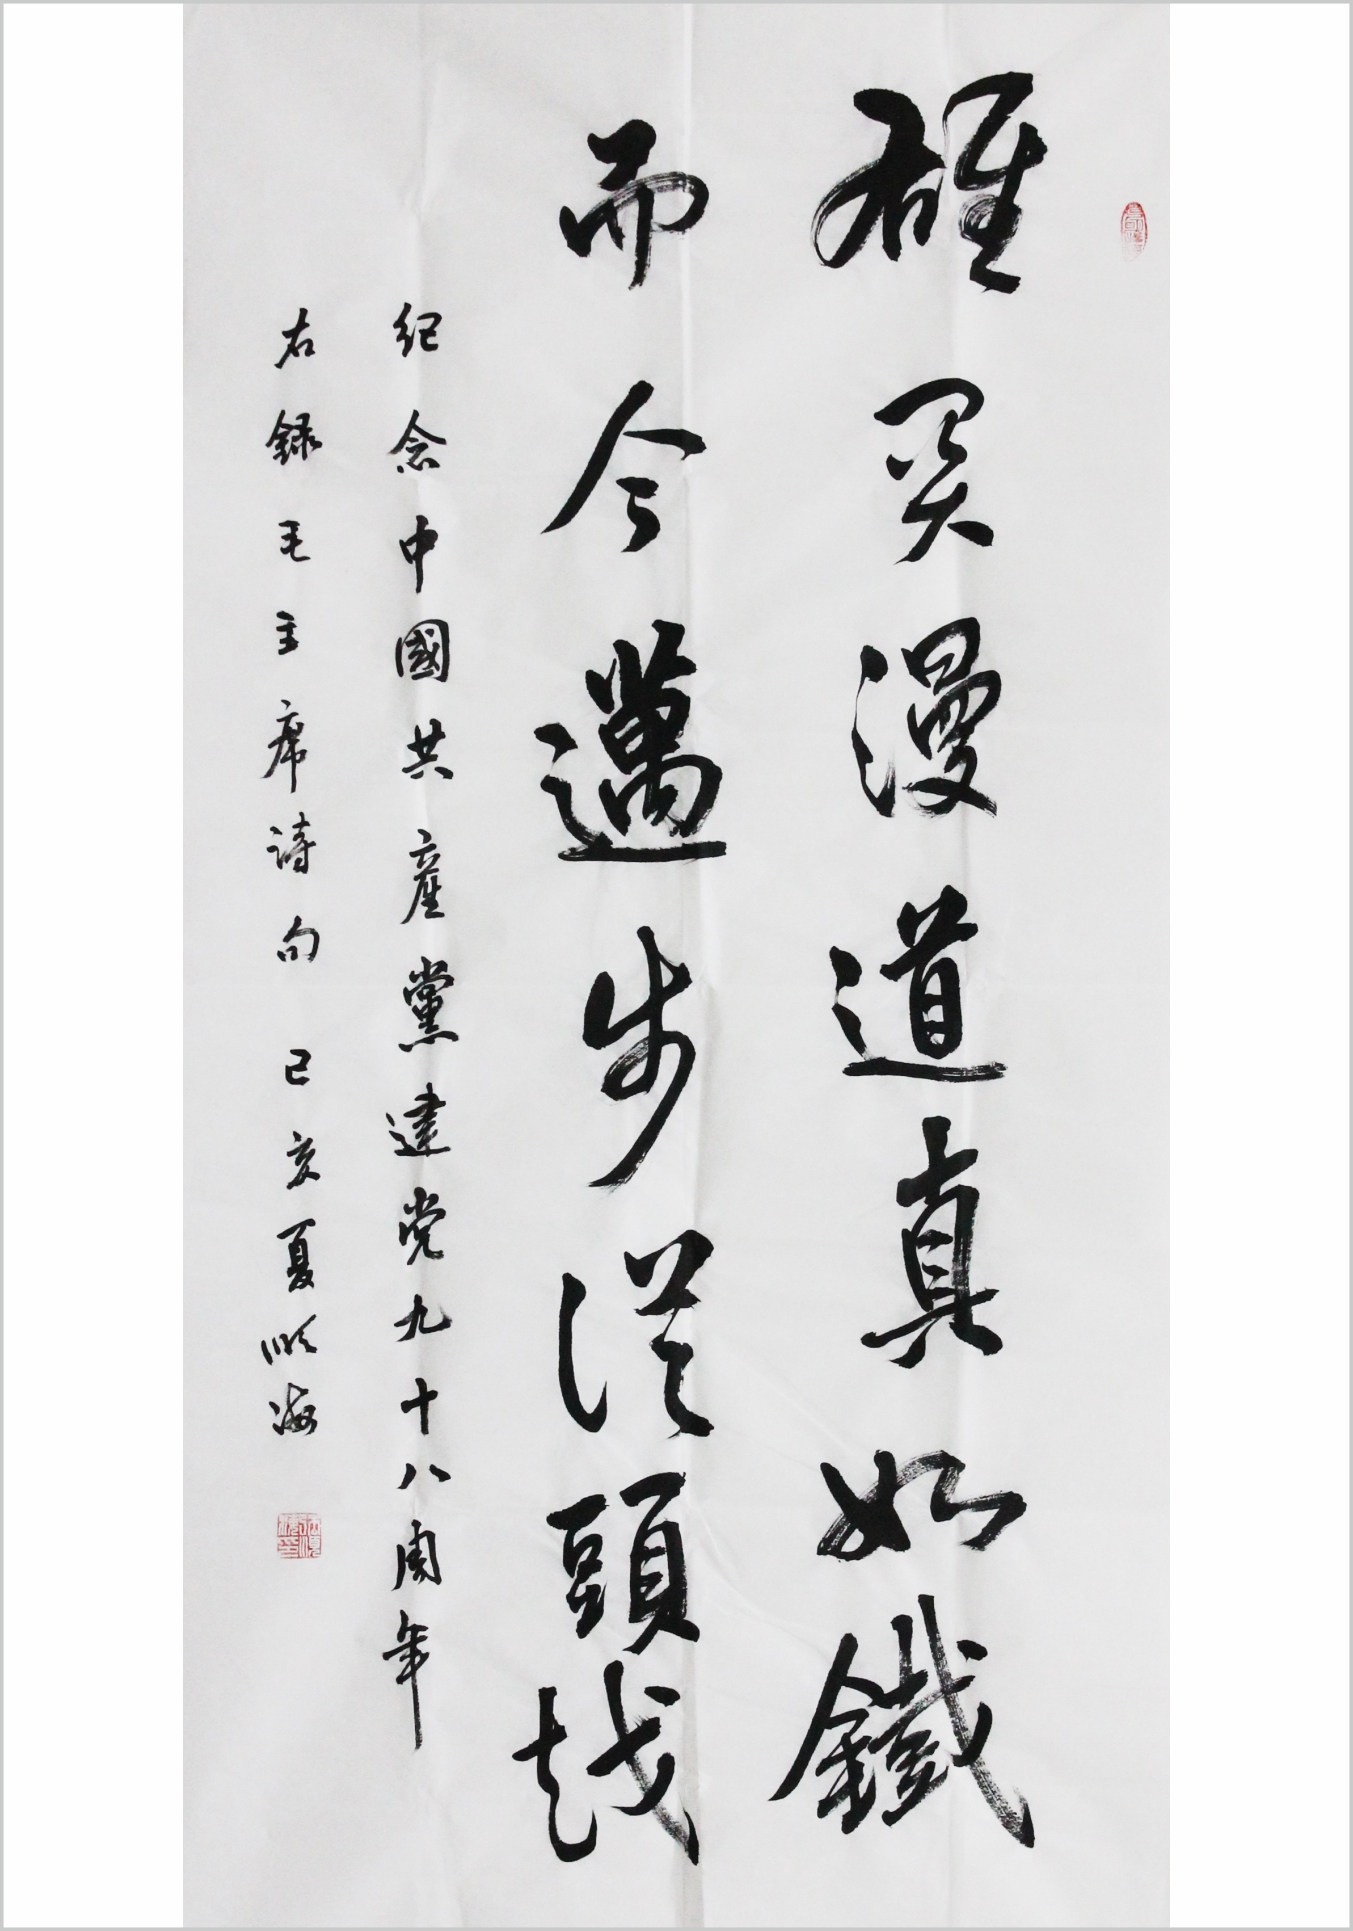 雄关漫道真如鐵
而今邁步從頭越
纪念中國共產黨建党九十八周年
右録毛主席詩句 己亥夏顺海